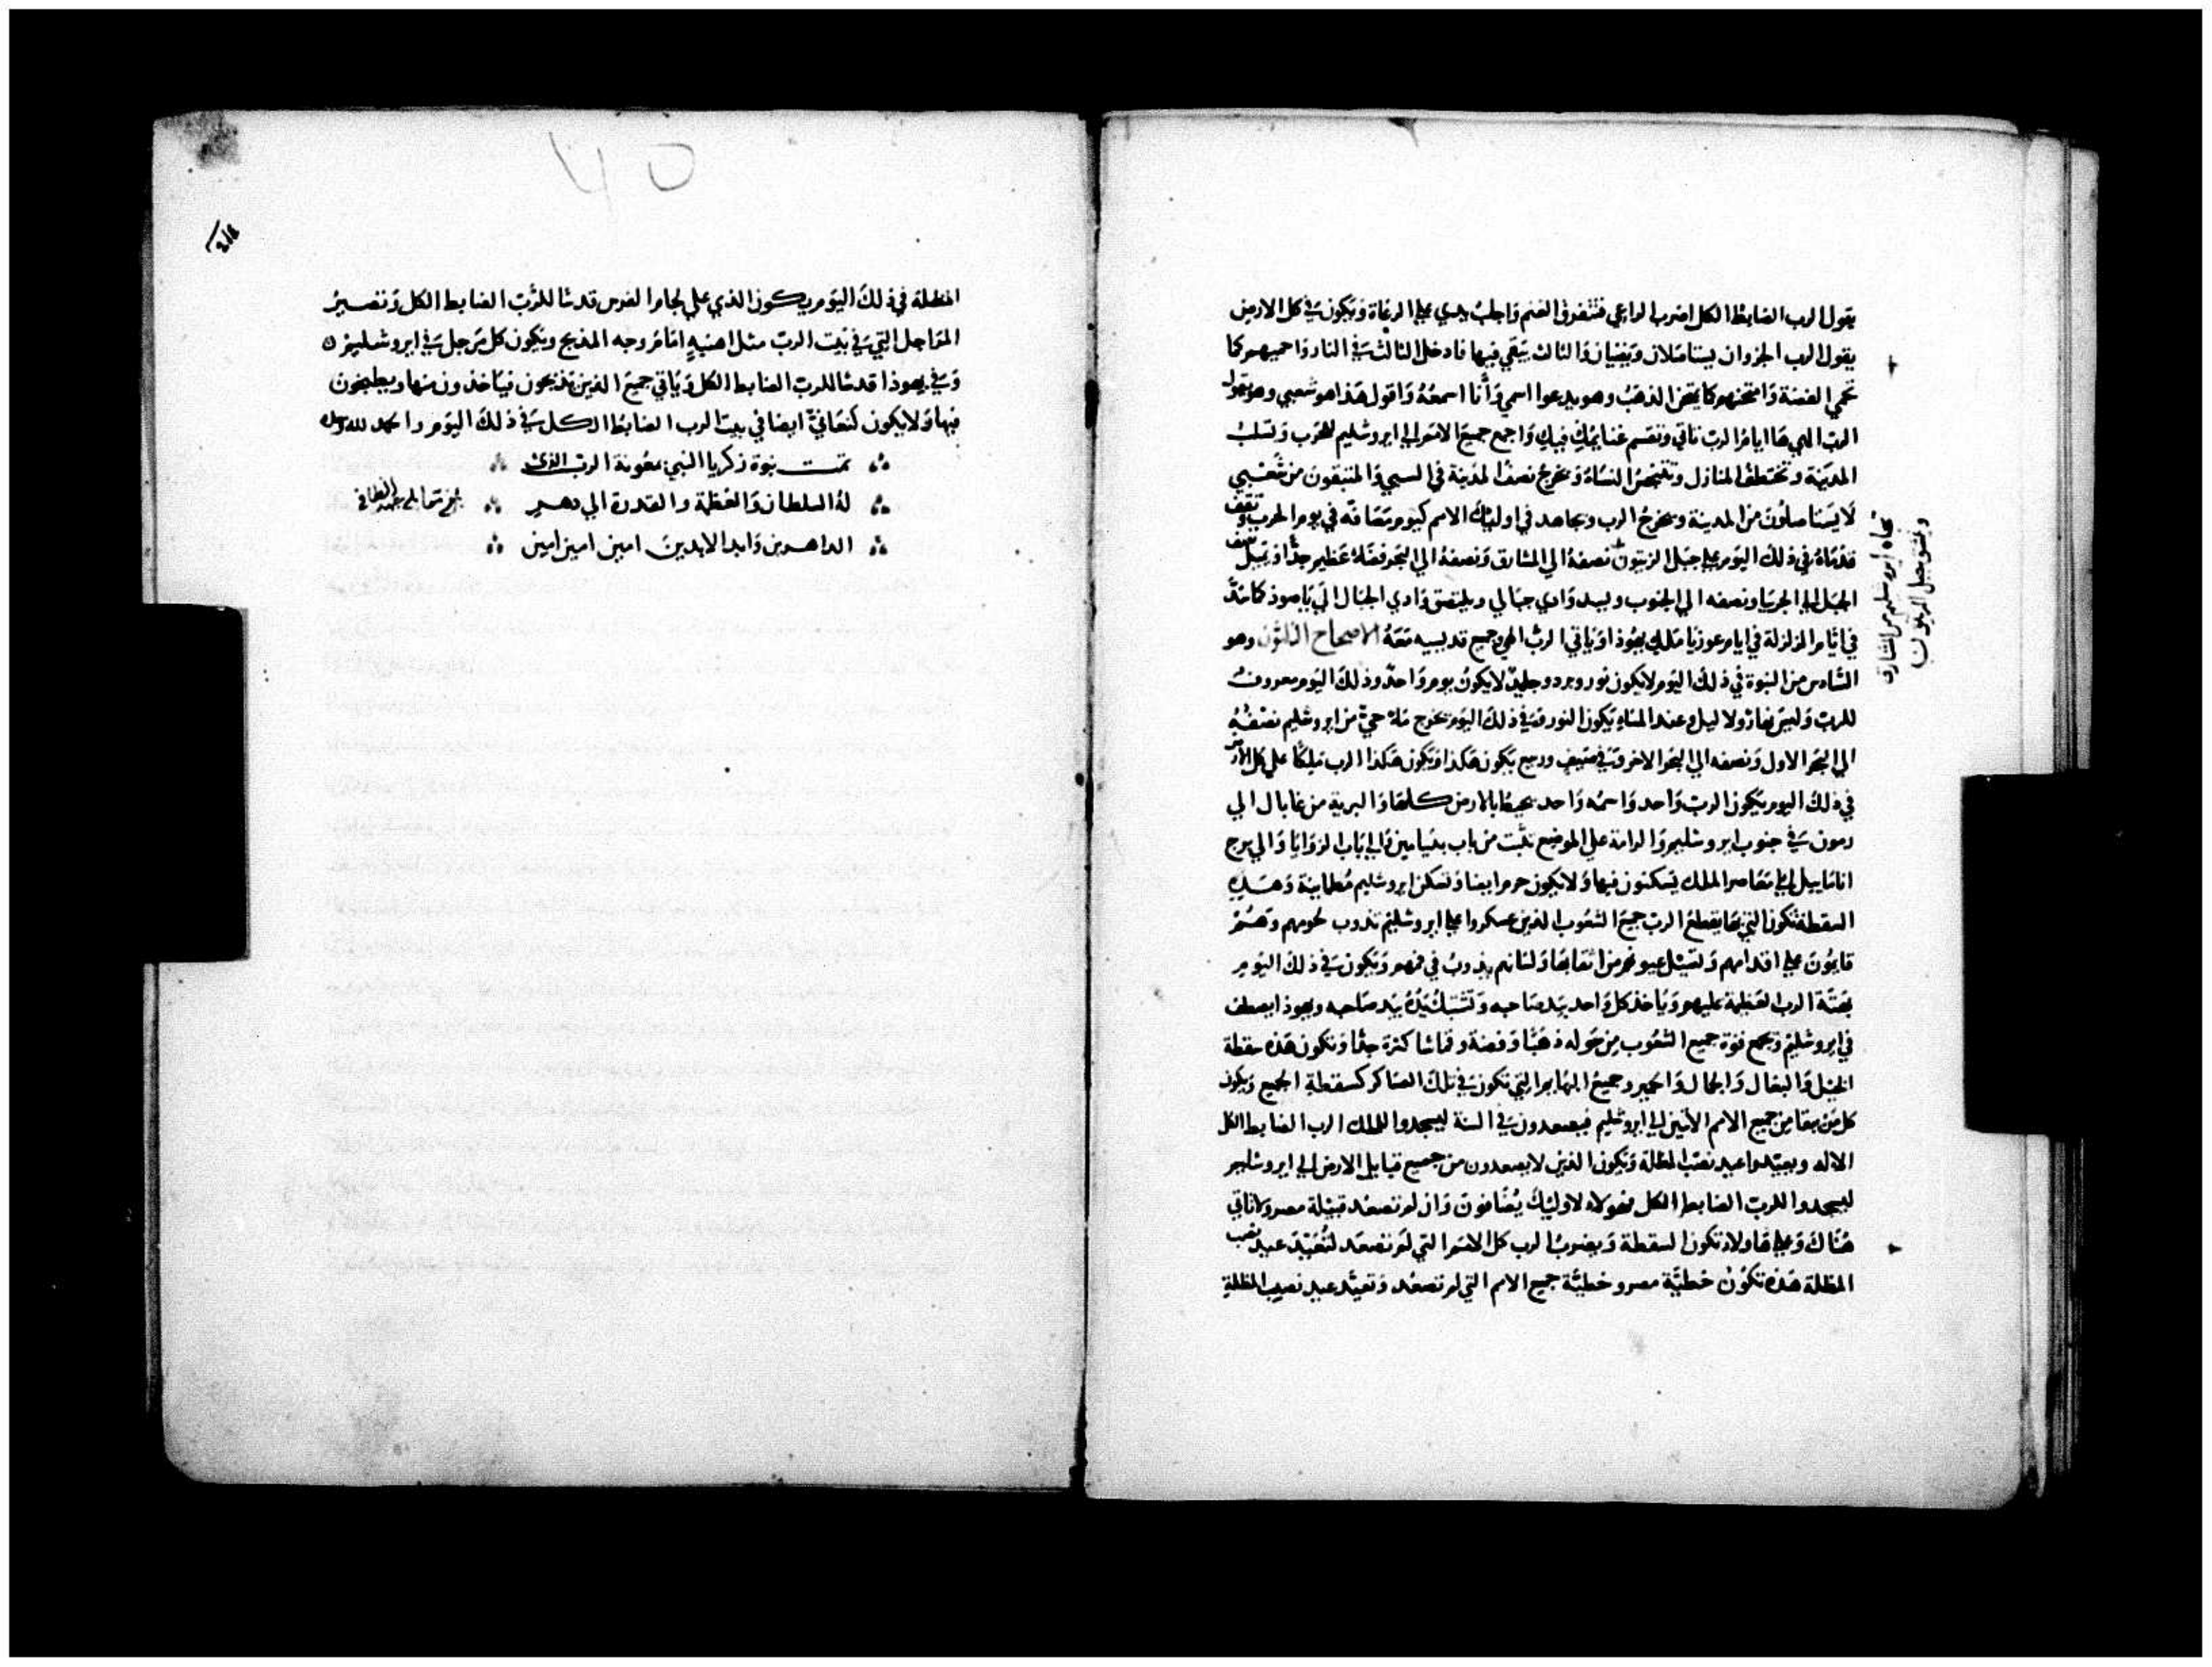 يقول الرب الضابط الكل اضرب الراعي فتتفرق الغنم واجلب يدي علي الرعاة ويكون في كل الارض
يقول الرب الجزوان يستاصلان ويفنيان والثالث يبقي فيها فادخل الثالث في النار واحميهم كما
تحمي الفضة وامتحنهم كما يمتحن الذهب وهو يدعوا اسمي وأنا اسمعه واقول هذا هو شعبي وهو يقول
الرب الهي ها ايام الرب تاتي وتقسم غنايمك فيك واجمع جميع الامم الي ايروشليم للحرب وتسلب
المدينة وتختطف المنازل وتفتضح النساء ويخرج نصف المدينة في السبي والمتبقون من شعبي
لا يستاصلون من المدينة ويخرج الرب ويجاهد في اوليك الامم كيوم مصافه في يوم الحرب وتقف
قدماه في ذلك اليوم علي جبل الزيتون نصفه الي المشارق ونصفه الي البحر فضاء عظيم جدا ويميل نصف
الجبل الي الجربيا ونصفه الي الجنوب ويسد وادي جبالي ويلتصق وادي الجبال الي ياصود كما سد
في ايام الزلزلة في ايام عوزيا ملك يهوذا وياتي الرب الهي وجميع قديسيه معه الاصحاح الثلثون وهو
السادس من النبوة في ذلك اليوم لا يكون نور وبرد وجليد لا يكون يوم واحد وذلك اليوم معروف
للرب وليس نهار ولا ليل وعند المساء يكون النور وفي ذلك اليوم يخرج ماء حي من ايروشليم نصفه
الي البحر الاول ونصفه الي البحر الاخر وفي صيف وربيع يكون هكذا ويكون هكذا الرب ملكا علي كل الارض
في ذلك اليوم يكون الرب واحد واسمه واحد يحيط بالارض كلها والبرية من غابال الي
رمون في جنوب ايروشليم والرامة علي الموضع تلبث من باب بنيامين والي باب الزوايا والي برج
انانايل الي معاصر الملك يسكنون فيها ولا يكون حرم ايضا وتسكن ايروشليم مطماينة وهذه
السقطة تكون التي بها يقطع الرب جميع الشعوب الذين عسكروا علي ايروشليم تذوب لحومهم وهم
قايمون علي اقدامهم وتسيل عيونهم من اثقابها ولسانهم يذوب في فمهم ويكون في ذلك اليوم
بهتة الرب العظيمة عليهم وياخذ كل واحد بيد صاحبه وتشتبك يده بيد صاحبه ويهوذا يصطف
في ايروشليم ويجمع قوة جميع الشعوب من حوله ذهبا وفضة وقماشا كثرة جدا وتكون هذه سقطة
الخيل والبغال والجمال والحمير وجميع البهايم التي تكون في تلك العساكر كسقطة الجميع ويكون
كل من يبقا من جميع الامم الاتين الي ايروشليم فيصعدون في السنة ليسجدوا للملك الرب الضابط الكل
الاله ويعيدوا عيد نصب المظلة ويكون الذين لا يصعدون من جميع قبايل الارض الي ايروشليم
ليسجدوا للرب الضابط الكل فهولاء لاوليك يضافون وان لم تصعد قبيلة مصر ولا تاتي
هناك وعلي هاولاء تكون السقطة ويضرب الرب كل الامم التي لم تصعد لتعيد عيد نصب
المظلة هذه تكون خطية مصر وخطية جميع الامم التي لم تصعد وتعيد عيد نصب المظلة
تجاه ايروشليم من المشارق
وينشق جبل الزيتون
المظلة في ذلك اليوم يكون الذي علي لجام الفرس قدسا للرب الضابط الكل وتصير
المراجل التي في بيت الرب مثل اهنية امام وجه المذبح ويكون كل مرجل في ايروشليم
وفي يهوذا قدسا للرب الضابط الكل وياتي جميع الذين يذبحون فياخذون منها ويطبخون
فيها ولا يكون كنعاني ايضا في بيت الرب الضابط الكل في ذلك اليوم والحمد لله
تمت نبوة زكريا النبي بمعونة الرب الذي
له السلطان والعظمة والقدرة الي دهر
الداهرين وابد الابدين امين امين امين